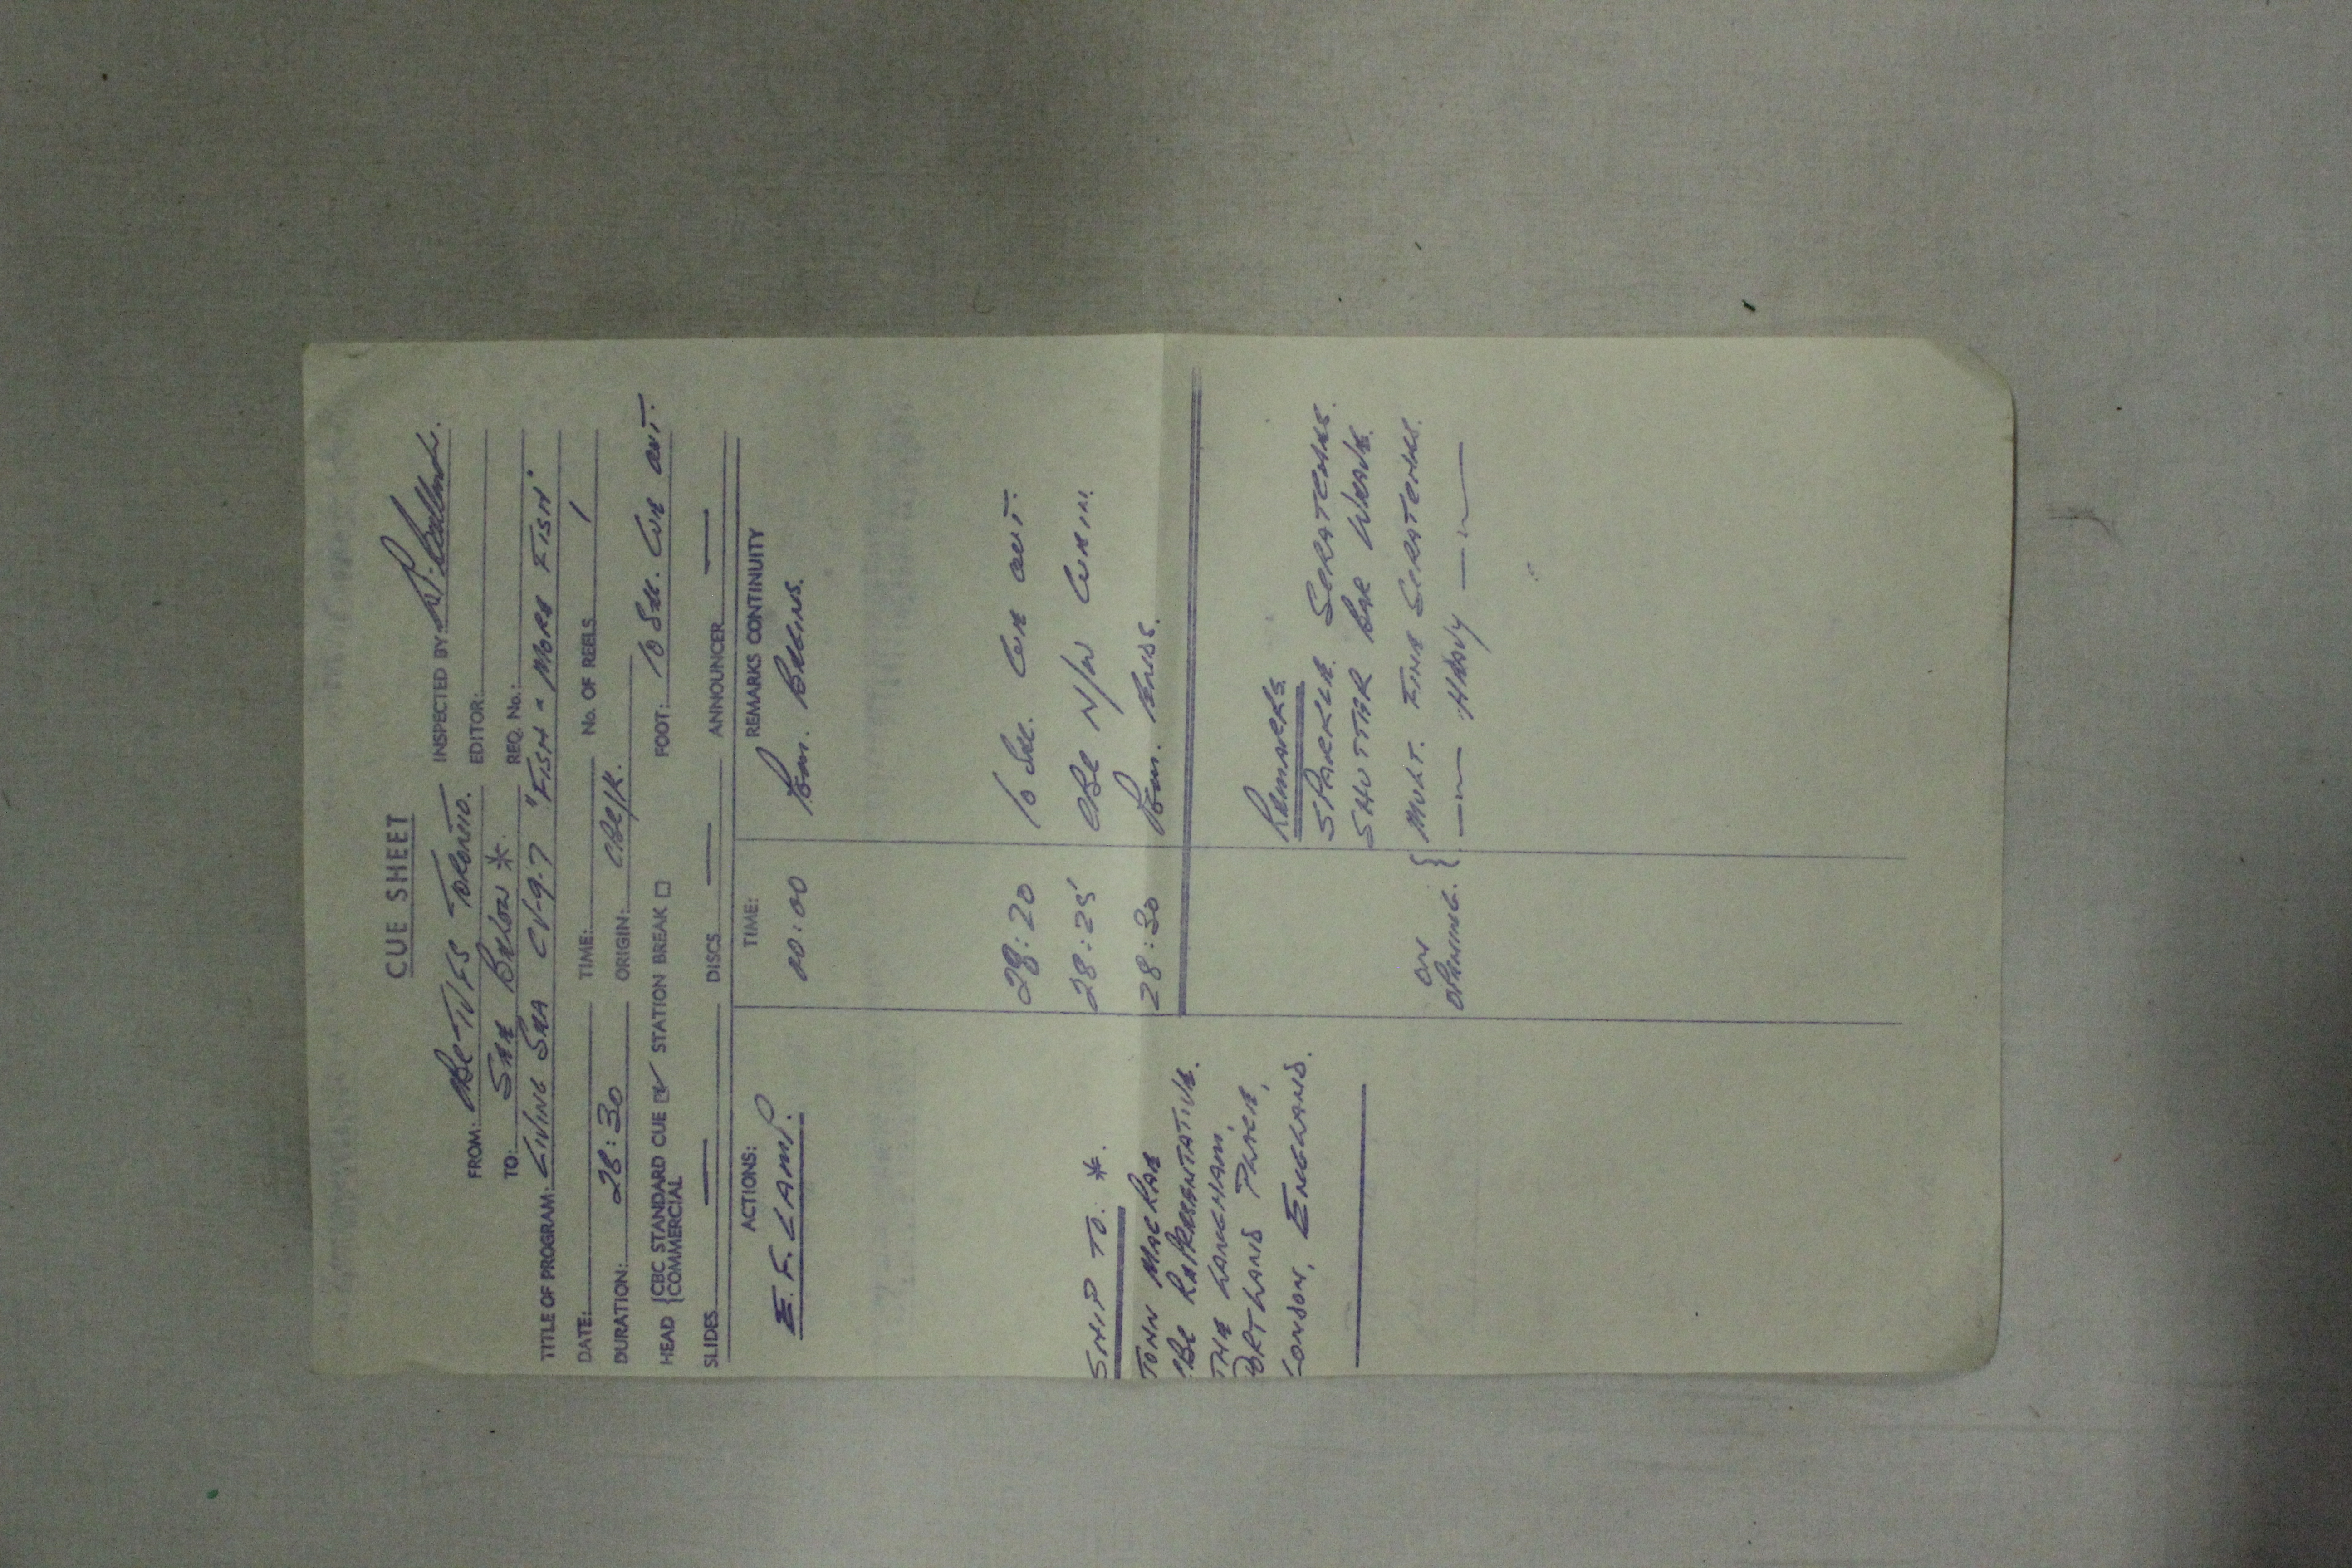 CUE SHEET
FROM: CBC-TVFS TORONTO. INSPECTED BY:
TO: SEE BELOW * EDITOR:
REQ. No.:
TITLE OF PROGRAM: LIVING SEA CV-9-7 "FISH & MORE FISH"
DATE: TIME: No. OF REELS 1
DURATION: 28:30 ORIGIN: CBC/K.
HEAD {CBC STANDARD CUE ☑ STATION BREAK ☐ FOOT: 10 SEC. CUE OUT.
{COMMERCIAL
SLIDES — DISCS — ANNOUNCER —
ACTIONS: TIME: REMARKS CONTINUITY
E.F. LAMP. 00:00 BEGINS.
28:20 10 SEC. CUE OUT.
28:25 CBC N/W CUE IN.
28:30 ENDS.
SHIP TO: *
JOHN MACRAE
CBC REPRESENTATIVE.
THE LANGHAM,
PORTLAND PLACE,
LONDON, ENGLAND.
REMARKS
SPARKLE SCRATCHES.
SHUTTER BAR WEAVE.
ON OPENING. { MULT. FINE SCRATCHES.
—〃— HEAVY —〃—